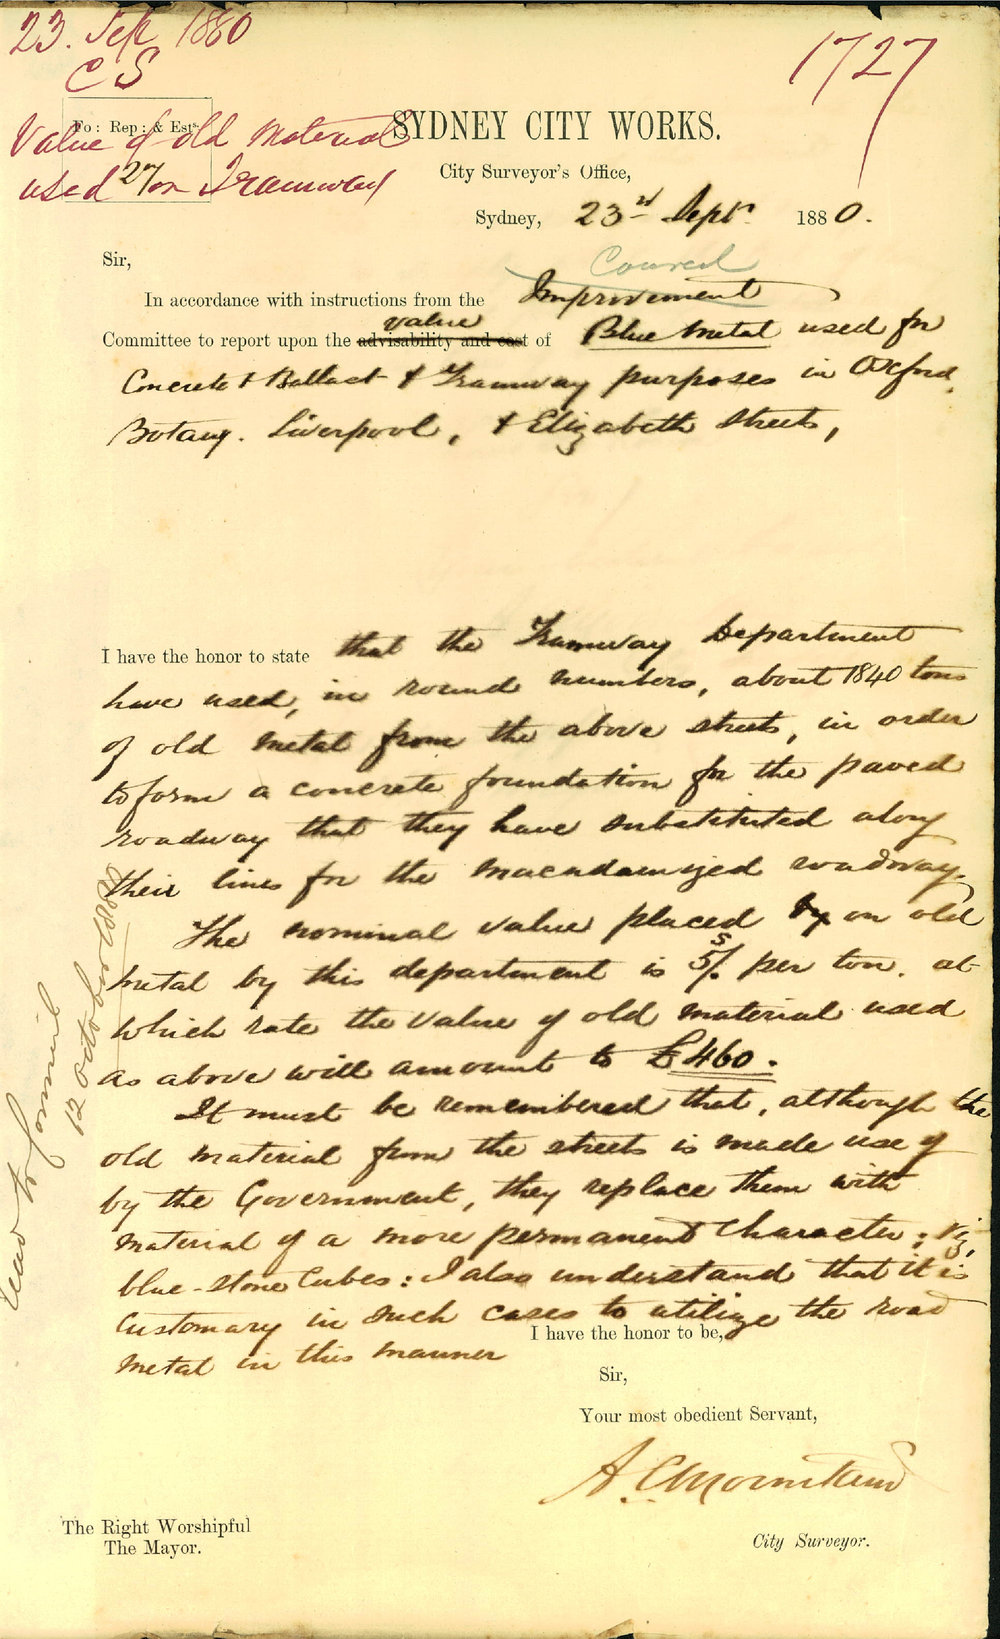 23. Sep 1880
CS
1727
Fo: Rep: & Ests
Value of old material
used on Tramway
27
SYDNEY CITY WORKS.
City Surveyor's Office,
Sydney, 23rd Septr 1880.
Sir,
Council
In accordance with instructions from the Improvement
value
Committee to report upon the advisability and cost of Blue metal used for
Concrete & Ballast & Tramway purposes in Oxford,
Botany. Liverpool, & Elizabeth Streets,
I have the honor to state that the Tramway Department
have used, in round numbers, about 1840 tons
of old metal from the above streets, in order
to form a concrete foundation for the paved
roadway that they have substituted along
their lines for the macadamized roadway.
The nominal value placed by on old
metal by this department is 5/s per ton. at
which rate the value of old material used
as above will amount to £460.
It must be remembered that, although the
old material from the streets is made use of
by the Government, they replace them with
material of a more permanent character; viz,
blue-stone Cubes: I also understand that it is
Customary in such cases to utilize the road
metal in this manner
I have the honor to be,
Sir,
Your most obedient Servant,
A. C. Mountain
City Surveyor.
The Right Worshipful
The Mayor.
Read to Council
12 October 1880